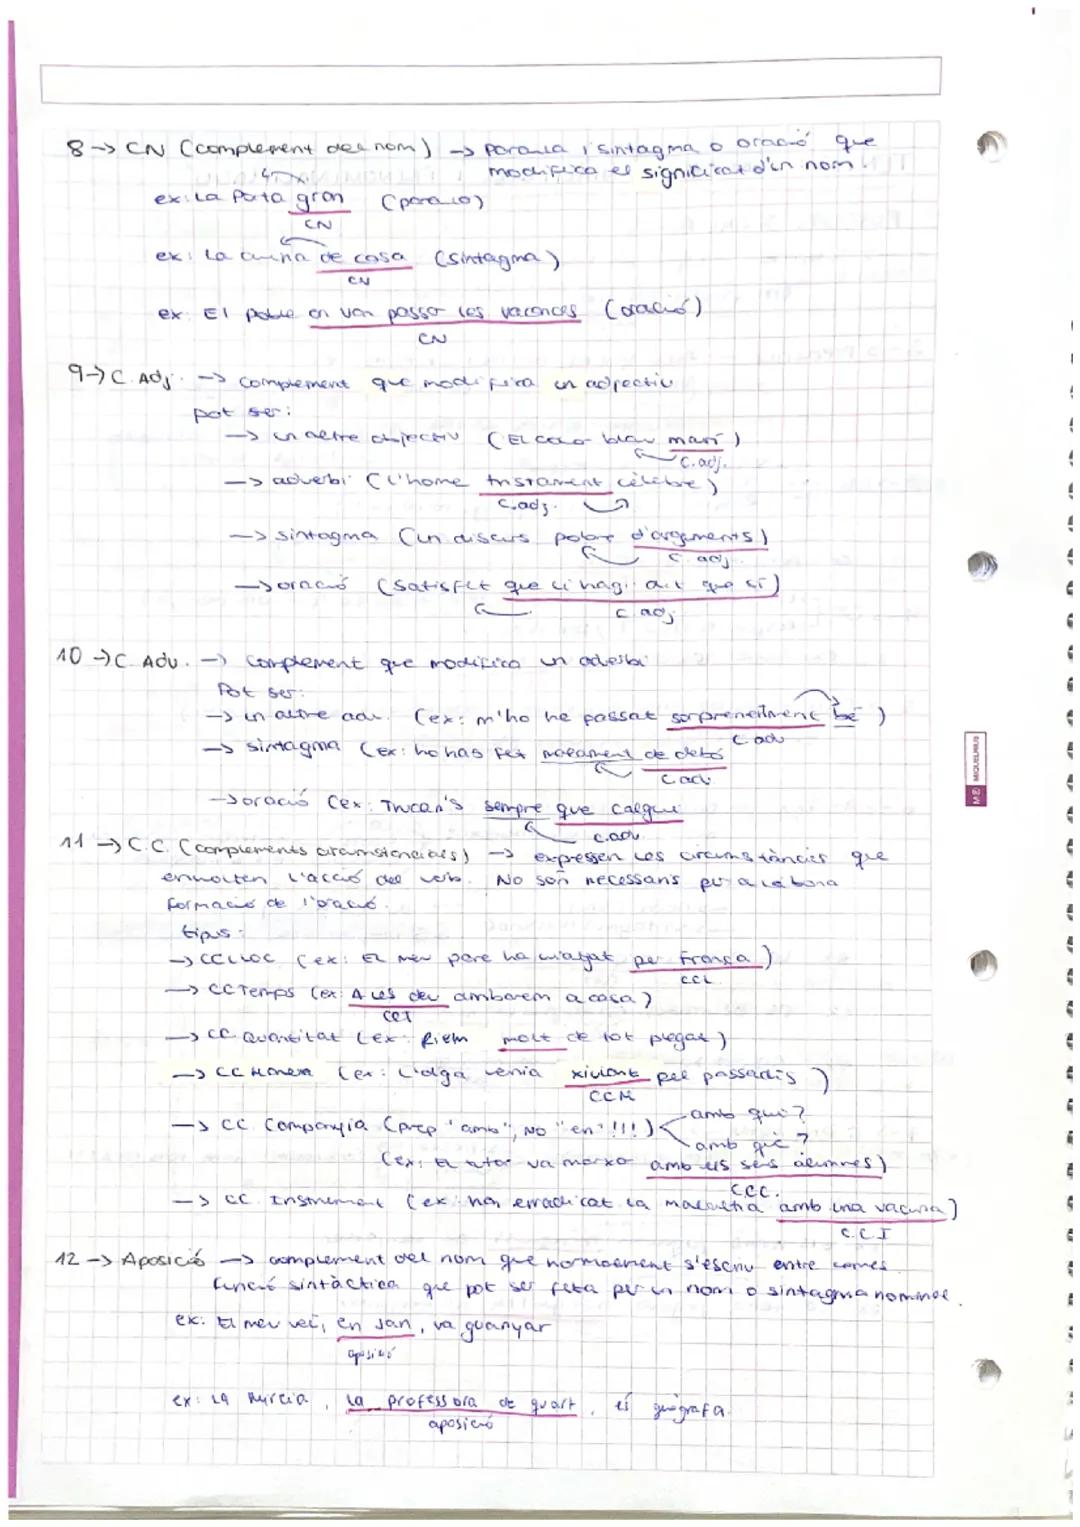 8 → CN (complement del nom) → paraula, sintagma o oració que
modifica el significat d'un nom.
ex: La Pota gran (paraula)
CN
ex: La cuina de casa (sintagma)
CN
ex: El poble on van passar les vacances (oració)
CN
9 → C. Adj. → complement que modifica un adjectiu
pot ser:
→ un altre adjectiu (El color blau marí)
C.adj.
→ adverbi (L'home tristament cèlebre)
C.adj.
→ sintagma (un discurs pobre d'arguments)
C. adj.
→ oració (Satisfet que li hagi dit que sí)
C. adj
10 → C. Adv. → complement que modifica un adverbi
Pot ser:
→ un altre adv. (ex: m'ho he passat sorprenentment bé)
C adv
→ sintagma (ex: ho has fet malament de debò
C.adv
→ oració (ex: Truca'n's sempre que calgui
C.adv
11 → C.C. (complements circumstancials) → expressen les circumstàncies que
envolten l'acció del verb. No són necessaris per a la bona
formació de l'oració.
tipus:
→ CCLLOC (ex: El meu pare ha viatjat per França)
CCL
→ CCTemps (ex: A les deu arribarem a casa)
CCT
→ CC Quantitat (ex: Riem molt de tot plegat)
→ CC Manera (ex: L'Olga venia xiulant pel passadís)
CCM
→ CC Companyia (prep "amb", NO "en"!!!)
amb qui?
amb què?
(ex: El tutor va marxar amb els seus alumnes)
CCC.
→ CC. Instrument (ex: han erradicat la malaltia amb una vacuna)
C.C.I
12 → Aposició → complement del nom que normalment s'escriu entre comes.
funció sintàctica que pot ser feta per un nom o sintagma nominal.
ex: El meu veí, en Joan, va guanyar
aposició
ex: La Núrcia, la professora de quart, és geògrafa.
aposició
MIQUELRIUS